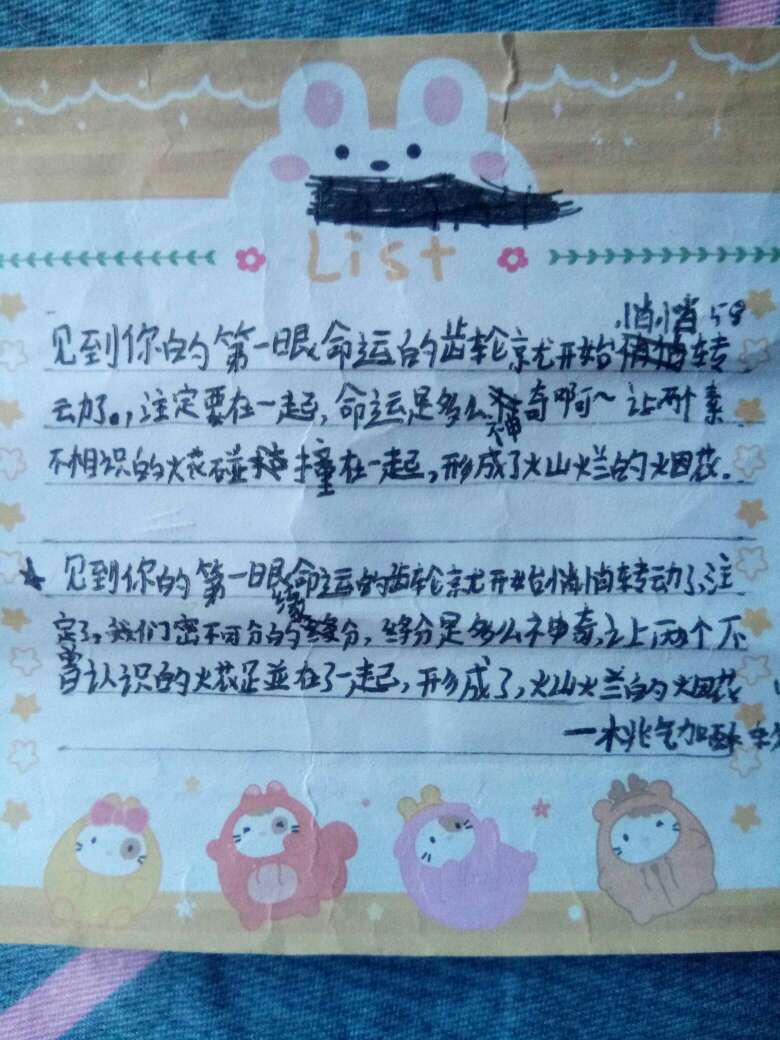 List
悄悄 58
见到你的第一眼命运的齿轮就开始转
动了。，注定要在一起，命运是多么神奇啊～让两个素
不相识的火花碰撞在一起，形成了灿烂的烟花。
★ 见到你的第一眼命运的齿轮就开始悄悄转动了，注
定了，我们密不可分的缘分，缘分是多么神奇，让两个不
曾认识的火花碰在了一起，形成了，灿烂的烟花
一桃气加